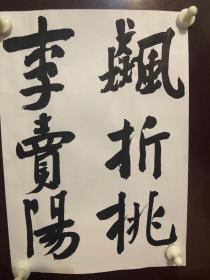 飄折桃
李賣陽